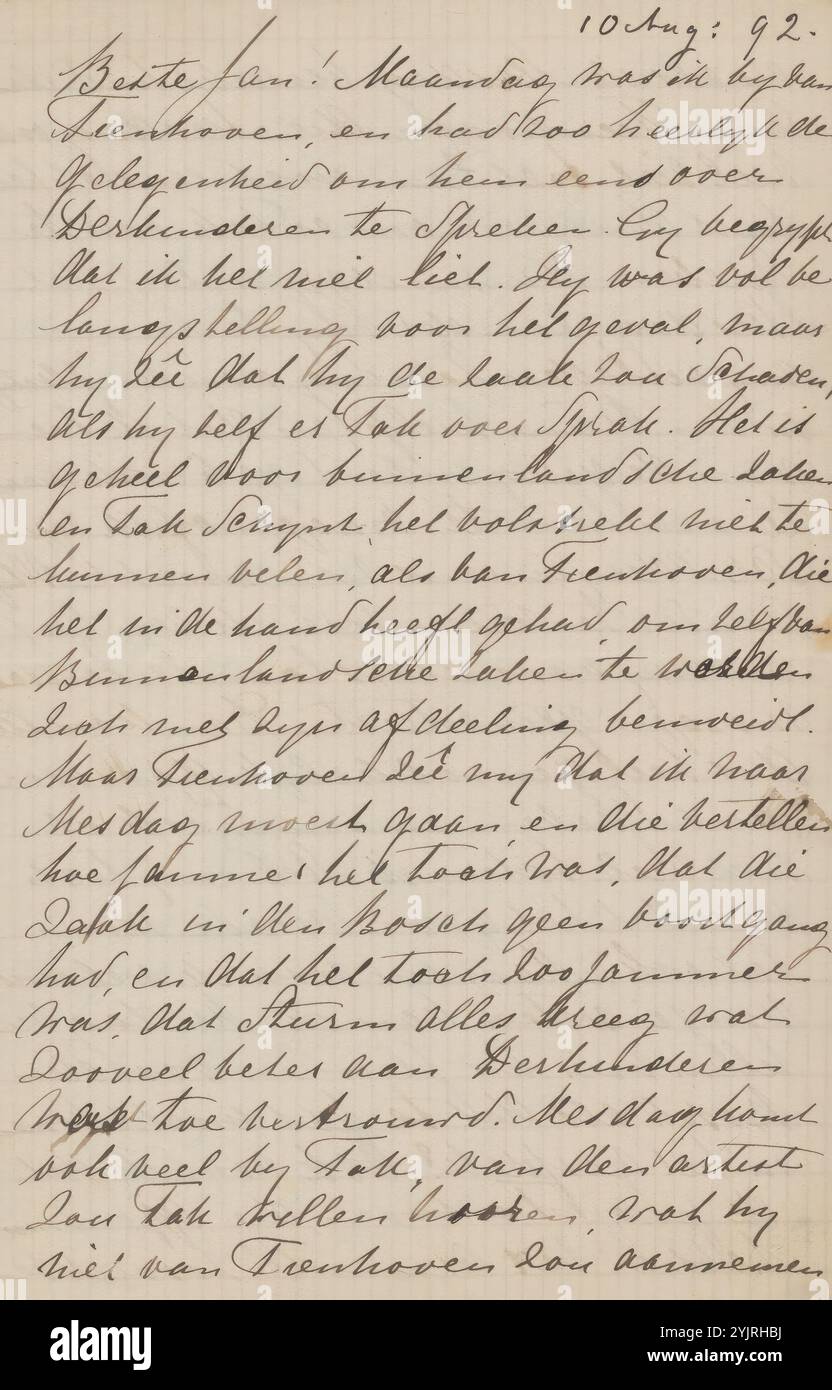 10 Aug: 92.
Beste Jan! Maandag was ik by van
Tienhoven, en had zoo heerlyk de
gelegenheid om hem eens over
Derkinderen te spreken. Gy begrypt
dat ik het niet liet. Hy was vol be
langstelling voor het geval, maar
hy zêi dat hy de zaak zou schaden,
als hy zelf er Tak over sprak. Het is
geheel voor binnenlandsche zaken
en Tak schynt het volstrekt niet te
kunnen velen, als van Tienhoven, die
het in de hand heeft gehad, om zelf van
Binnenlandsche zaken te worden
zich met zyn afdeeling bemoeidt.
Maar Tienhoven zêi my dat ik naar
Mesdag moest gaan, en die vertellen
hoe jammer het toch was, dat die
zaak in den Bosch geen voortgang
had, en dat het toch zoo jammer
was, dat Sturm alles kreeg wat
zooveel beter aan Derkinderen
werd toe vertrouwd. Mesdag komt
ook veel by Tak, van den artist
zou Tak willen hooren, wat hy
niet van Tienhoven zou aannemen
alamy
Image ID: 2YJRHBJ
www.alamy.com